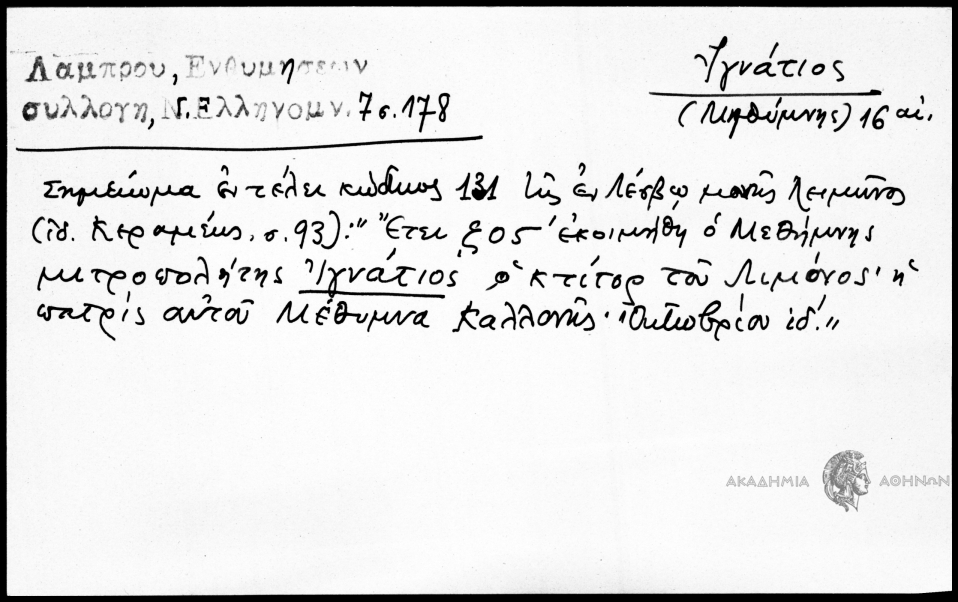 Λάμπρου, Ενθυμήσεων
συλλογή, Ν. Ελληνομν. 7 σ. 178
Ἰγνάτιος
(Μηθύμνης) 16 αἰ.
Σημείωμα ἐν τέλει κώδικος 131 τῆς ἐν Λέσβῳ μονῆς Λειμῶνος
(ἰδ. Κεραμέως, σ. 93): "Ἔτει ζος ἐκοιμήθη ὁ Μεθήμνης
μετροπολήτης Ἰγνάτιος ὁ κτίτορ τοῦ Λιμόνος· ἡ
πατρίς αὐτοῦ Μέθυμνα Καλλονῆς· Ὀκτωβρίου ιδ΄."
ΑΚΑΔΗΜΙΑ ΑΘΗΝΩΝ